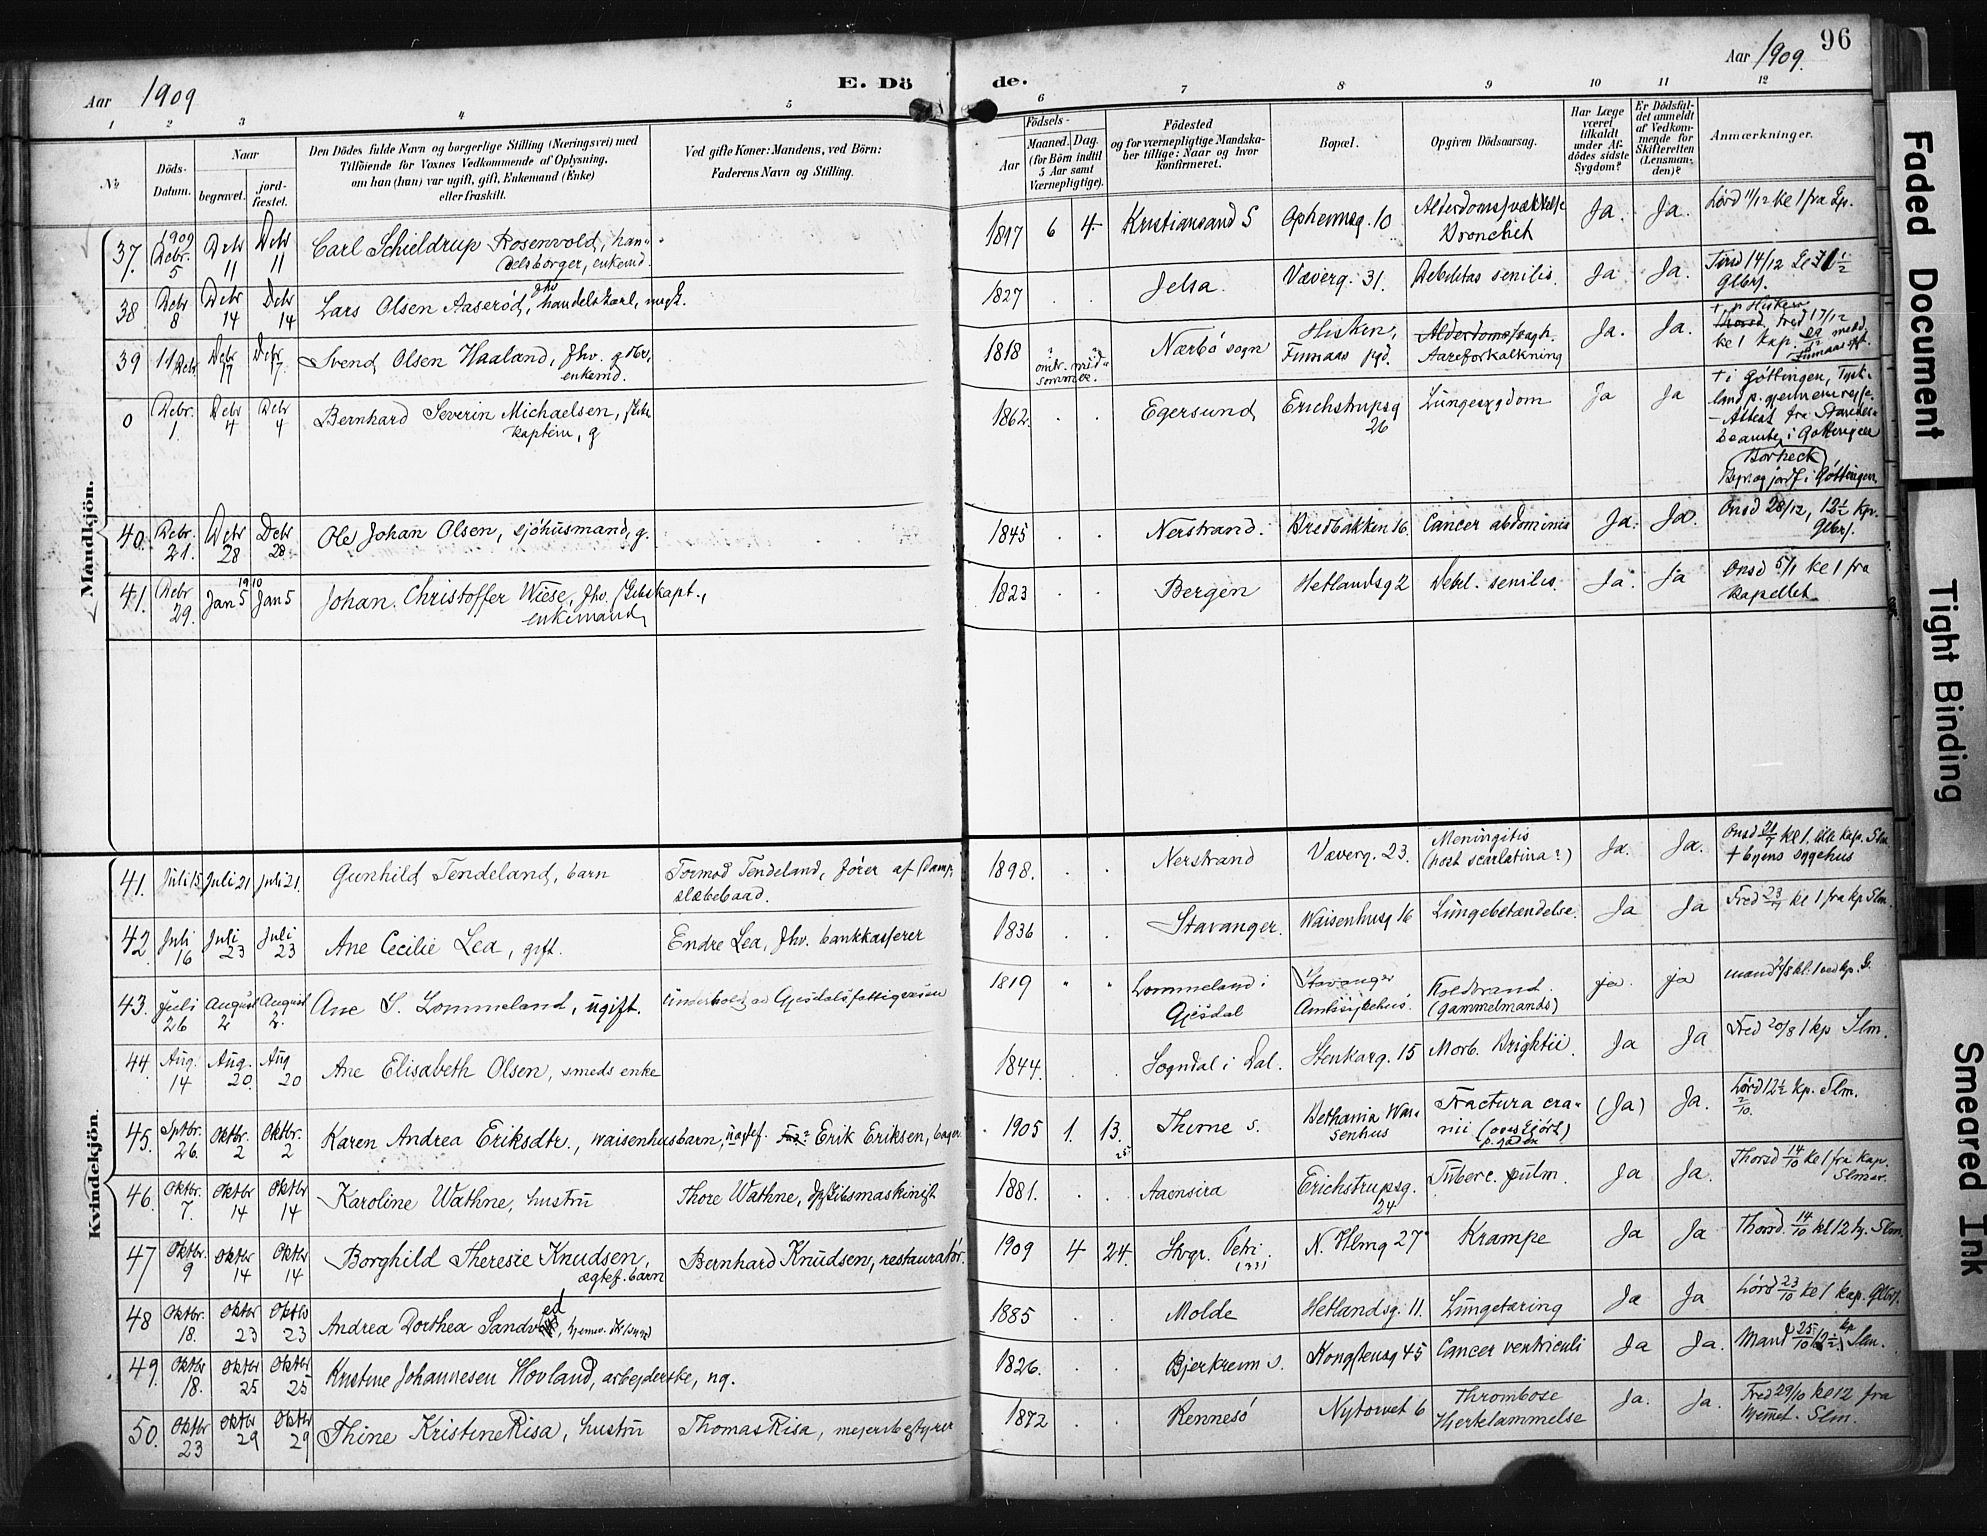 96
Aar 1909
E. Döde.
Aar 1909.
1 2 3 4 5 6 7 8 9 10 11 12
No
Döds-Datum.
Naar
begravet.
jord-fæstet.
Den Dödes fulde Navn og borgerlige Stilling (Næringsvei) med
Tilföiende for Voxnes Vedkommende af Oplysning,
om han (hun) var ugift, gift, Enkemand (Enke)
eller fraskilt.
Ved gifte Koner: Mandens, ved Börn:
Faderens Navn og Stilling.
Födsels-
Aar
Maaned. Dag.
(for Börn indtil
5 Aar samt
Værnepligtige).
Födested
og for værnepligtige Mandska-
ber tillige: Naar og hvor
konfirmeret.
Bopæl.
Opgiven Dödsaarsag.
Har Læge
været
tilkaldt
under Af-
dödes sidste
Sygdom?
Er Dödsfal-
det anmeldt
af Vedkom-
mende for
Skifteretten
(Lensman-
den)?
Anmærkninger.
Mandkjön.
37. 1909 Debr. 5 Debr 11 Debr 11 Carl Schieldrup Rosenvold, han-
delsborger, enkemd. 1847 6 4. Kristiansand S Ja. Ja. Lørd 11/12 kl 1 fra Gp.
Bronchit
38 Debr 8 Debr 14 Debr 14 Lars Olsen Aaserød, fhv handelskarl, 1827 . . Jelsa. Væverg. 31. Debilitas senilis. Ja Ja. 14/12
Glbrs.
39 11 Debr Debr 17 Debr 17 Svend Olsen Haaland, fhv. gbr.,
enkemd. 1818 omtr. mid-
sommer. Nærbø sogn Hisken,
Finnaas pgd. Aareforkalkning Ja. Ja. fred 17/12
kl 1 kap.
0 Debr. 1. Debr 4 Debr 4 Bernhard Severin Michaelsen, skibs
kaptein, g 1862. . . Egersund Erichstrupsg
26 Lungesygdom Ja Ja + i Göttingen, Tysk-
land p. gjennemrejse.
- Attest fra Standes-
beamte i Göttingen
Borheck
Begr. og jordf. i Göttingen.
40. Debr. 21. Debr 28 Debr 28 Ole Johan Olsen, sjøhusmand, g. 1845 . . Nerstrand. Bredbakken 16. Cancer abdominis Ja. Ja. Onsd 28/12, 12½ kp.
Glbrs.
41. Debr 29. 1910 Jan 5 Jan 5 Johan Christoffer Wiese, fhv. skibskapt.,
enkemand, 1823 . . Bergen Hetlandsg 2 Debil. senilis. Ja. Ja Onsd 5/1 kl 1 fra
kapellet
Kvindekjön.
41. Juli 15 Juli 21 Juli 21. Gunhild Tendeland, barn Tormod Tendeland, fører af Damp-
slæbebaad. 1898. . . Nerstrand Væverg. 23. Meningitis
(post scarlatina?) Ja. Ja. Onsd 21/7 kl 1. lille kap. Slm
+ byens sygehus
42. Juli 16 Juli 23 Juli 23 Ane Cecilie Lea, gift. Endre Lea, fhv. bankkasserer 1836 . . Stavanger. Waisenhusg 16 Lungebetændelse. Ja Ja Fred 23/7 kl 1 fra kp Slm.
43. Juli 26 August 2 August 2. Ane S. Lommeland, ugift. underholdt av Gjesdals fattigvæsen 1819 " " Lommeland i
Gjesdal Stavanger
Amtssykehus. Koldbrand.
(gammelmands) ja. ja mand 2/8 kl. 1 ved kp. G.
44. Aug. 14 Aug. 20. Aug 20 Ane Elisabeth Olsen, smeds enke 1844. . . Sogndal i Dal. Stenkarg. 15 Morb. Brightii. Ja Ja Fred 20/8 1 kp Slm.
45. Sptbr. 26. Oktbr. 2 Oktbr. 2 Karen Andrea Eriksdtr., waisenhusbarn, uægtef. Erik Eriksen, bager 1905 1. 13. Thime s. Bethania Wai-
senhus Fractura cra-
nii (overkjørt)
p. gaden (Ja) Ja. Lørd 12½ kp. Slm.
2/10.
46. Oktbr. 7. Oktbr 14 Oktbr 14 Karoline Wathne, hustru Thore Wathne, skibsmaskinist 1881. . . Aaensira Erichstrupsg.
24 Tuberc. pulm. Ja Ja. Thorsd 14/10 kl 1 fra kap.
47 Oktbr. 9 Oktbr 14 Oktbr 14 Borghild Theresie Knudsen,
ægtef. barn Bernhard Knudsen, restauratør. 1909 4 24. Stvgr. Petri N. Hlmg 27 Krampe Ja Ja Thorsd 14/10 kl 12 hj. Slm.
48 Oktbr. 18. Oktbr 23 Oktbr 23 Andrea Dorthea Sandved, 1885 . . Molde Hetlandsg. 11. Lungetæring Ja Ja Lørd 23/10 kl 1 kap. Glbrs.
49. Oktbr 18. Oktbr 25 Oktbr 25 Kristine Johannesen Hovland, arbejderske, ug. 1826. . . Bjerkreim s. Kongstensg 45 Cancer ventriculi Ja Ja. Mand 25/10 12½ kp Slm.
50. Oktbr 23 Oktbr 29 Oktbr 29 Thine Kristine Risa, hustru Thomas Risa, mejeribestyrer 1872 . . Rennesö Nytorvet 6 Thrombose
Hjerteklammelse Ja. Ja. Fred 29/10 kl 12 fra
hjemmet. Slm.
Faded Document
Tight Binding
Smeared Ink